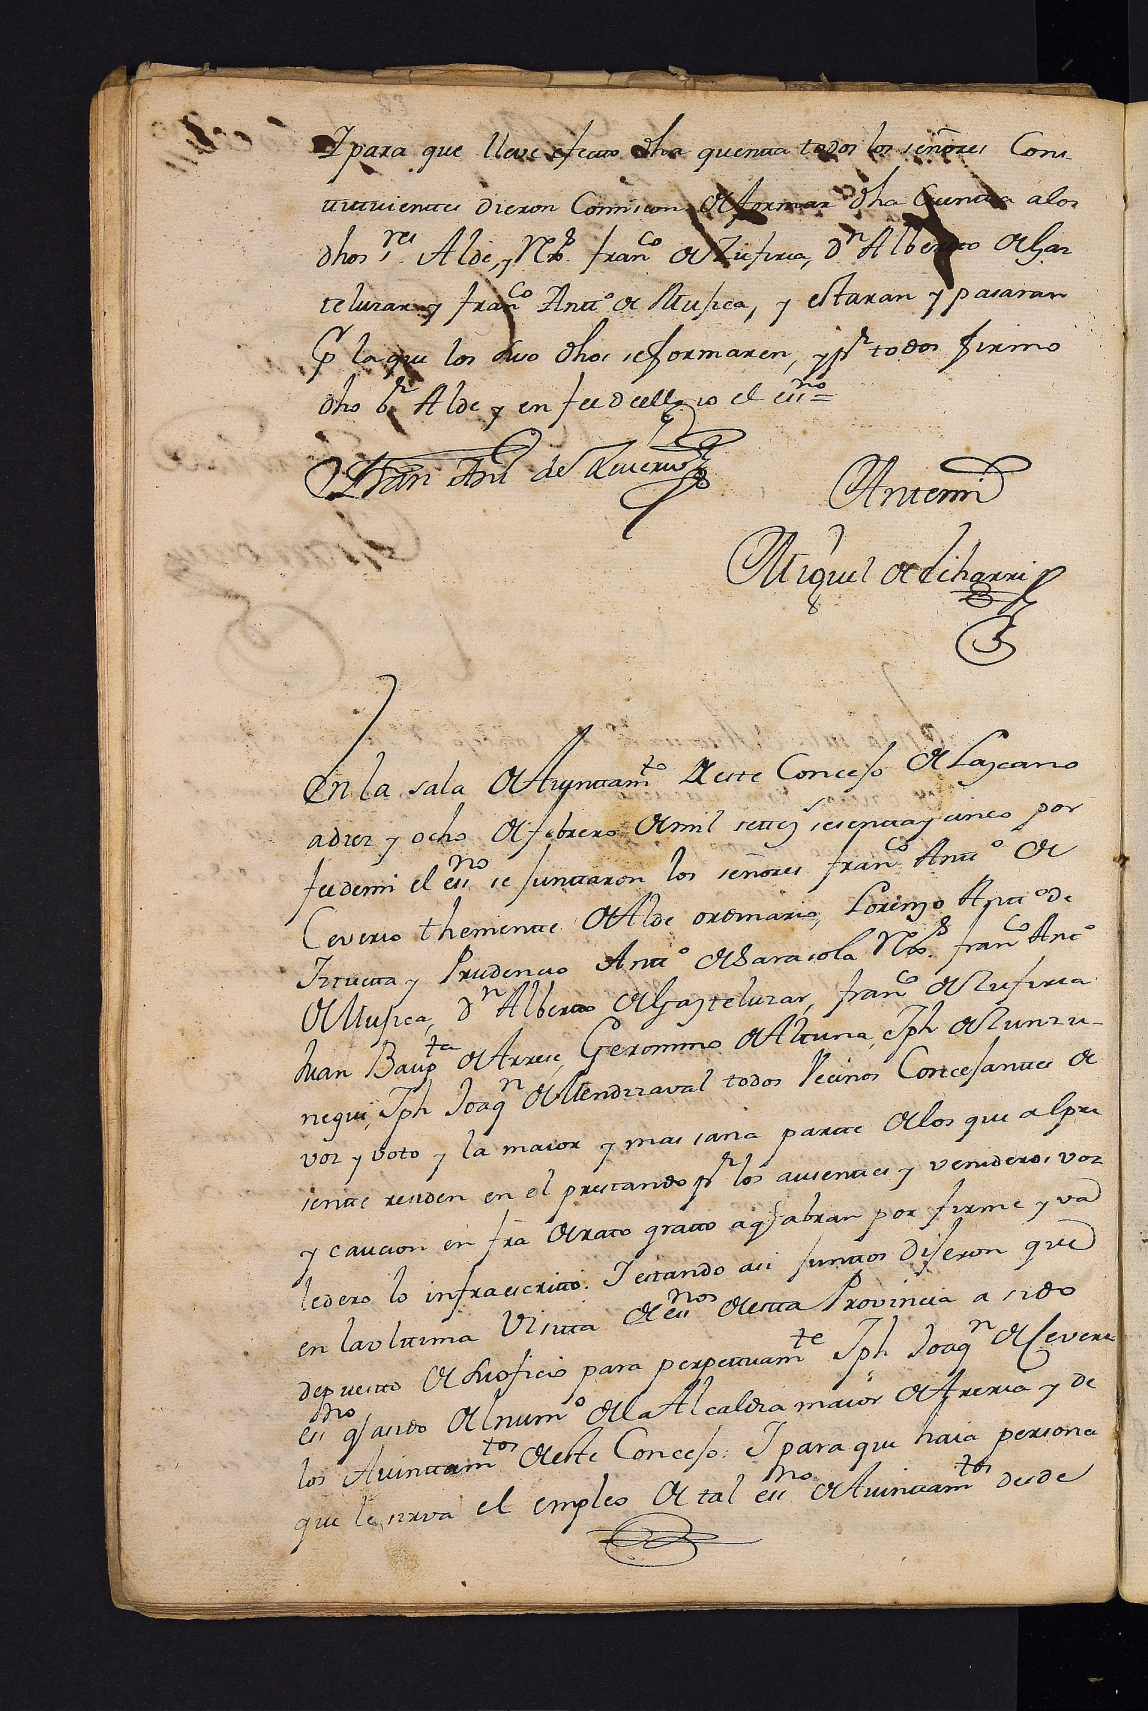 I para que lleve efecto dha quenta todos los señores Cons-
titutuientes dieron Comision de formar dha Cuenta a los
dhos res Alde, y Rexs. franco de Zufiria, Dn Alberto de Gaz
teluzar y franco Antto de Musica, y estaran y pasaran
Pr la que los suso dhos se formaren, y pr todos firmo
dho Sr Alde y en fee de ello io el essno =
Fran Ant de
Antemi
Miguel de Echarri
En la sala de Ayuntamto de este Concejo de Lazcano
a diez y ocho de febrero de mil settezs sesenta y cinco por
fee de mi el essno se junttaron los señores franco Antto de
Ceverio theniente de Alde ordinario, Lorenzo Antto de
Iztuetta y Prudencio Antto de Sarasola Rexs. franco Anto
de Musica, Dn Alberto de Gazteluzar, franco de Zufiria
Juan Bapta de Arrese, Geronimo de Altuna, Jph de Zunzu-
negui, Jph Joaqn de Mendizaval todos Vecinos Concejantes de
voz y voto y la maior y mas sana partte de los que al pre
sentte residen en el prestando pr los ausenttes y venideros voz
y caucion en fra de rato gratto a q abran por firme y va
ledero lo infraescritto. I estando asi junttos dijeron que
en la vlttima Visitta de essnos de estta Provincia a sido
depuestto de su oficio para perpettuamte Jph Joaqn de Ceverio
essno q a sido del numo de la Alcaldia maior de Areria y de
los Auinttamtos de este Concejo: I para que haia persona
que le sirva el empleo de tal essno de Auinttamtos desde